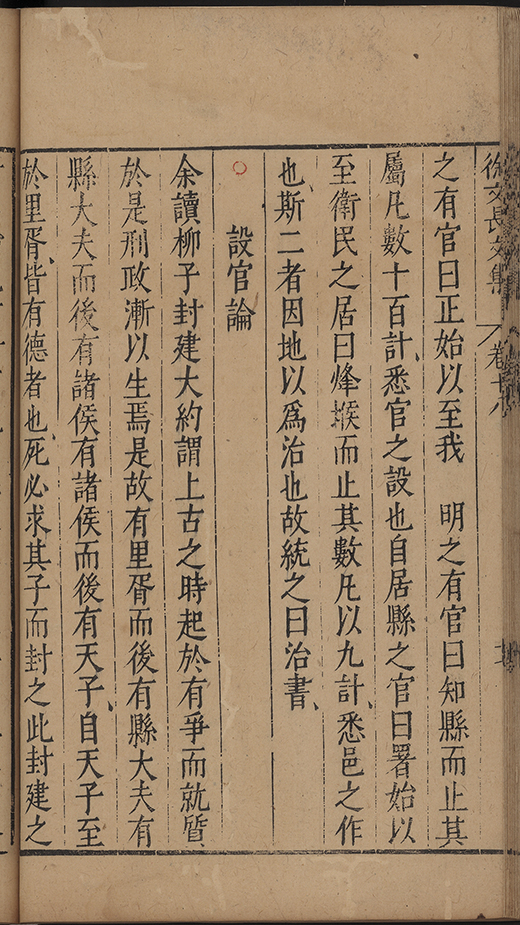 徐文長文集 卷十八
之有官曰正始以至我　明之有官曰知縣而止其
屬凡數十百計、悉官之設也自居縣之官曰署始以
至衛民之居曰烽堠而止其數凡以九計、悉邑之作
也、斯二者因地以爲治也故統之曰治書、
○
設官論
余讀柳子封建大約謂上古之時起於有爭而就質、
於是刑政漸以生焉是故有里胥而後有縣大夫有
縣大夫而後有諸侯有諸侯而後有天子、自天子至
於里胥、皆有德者也、死必求其子而封之此封建之